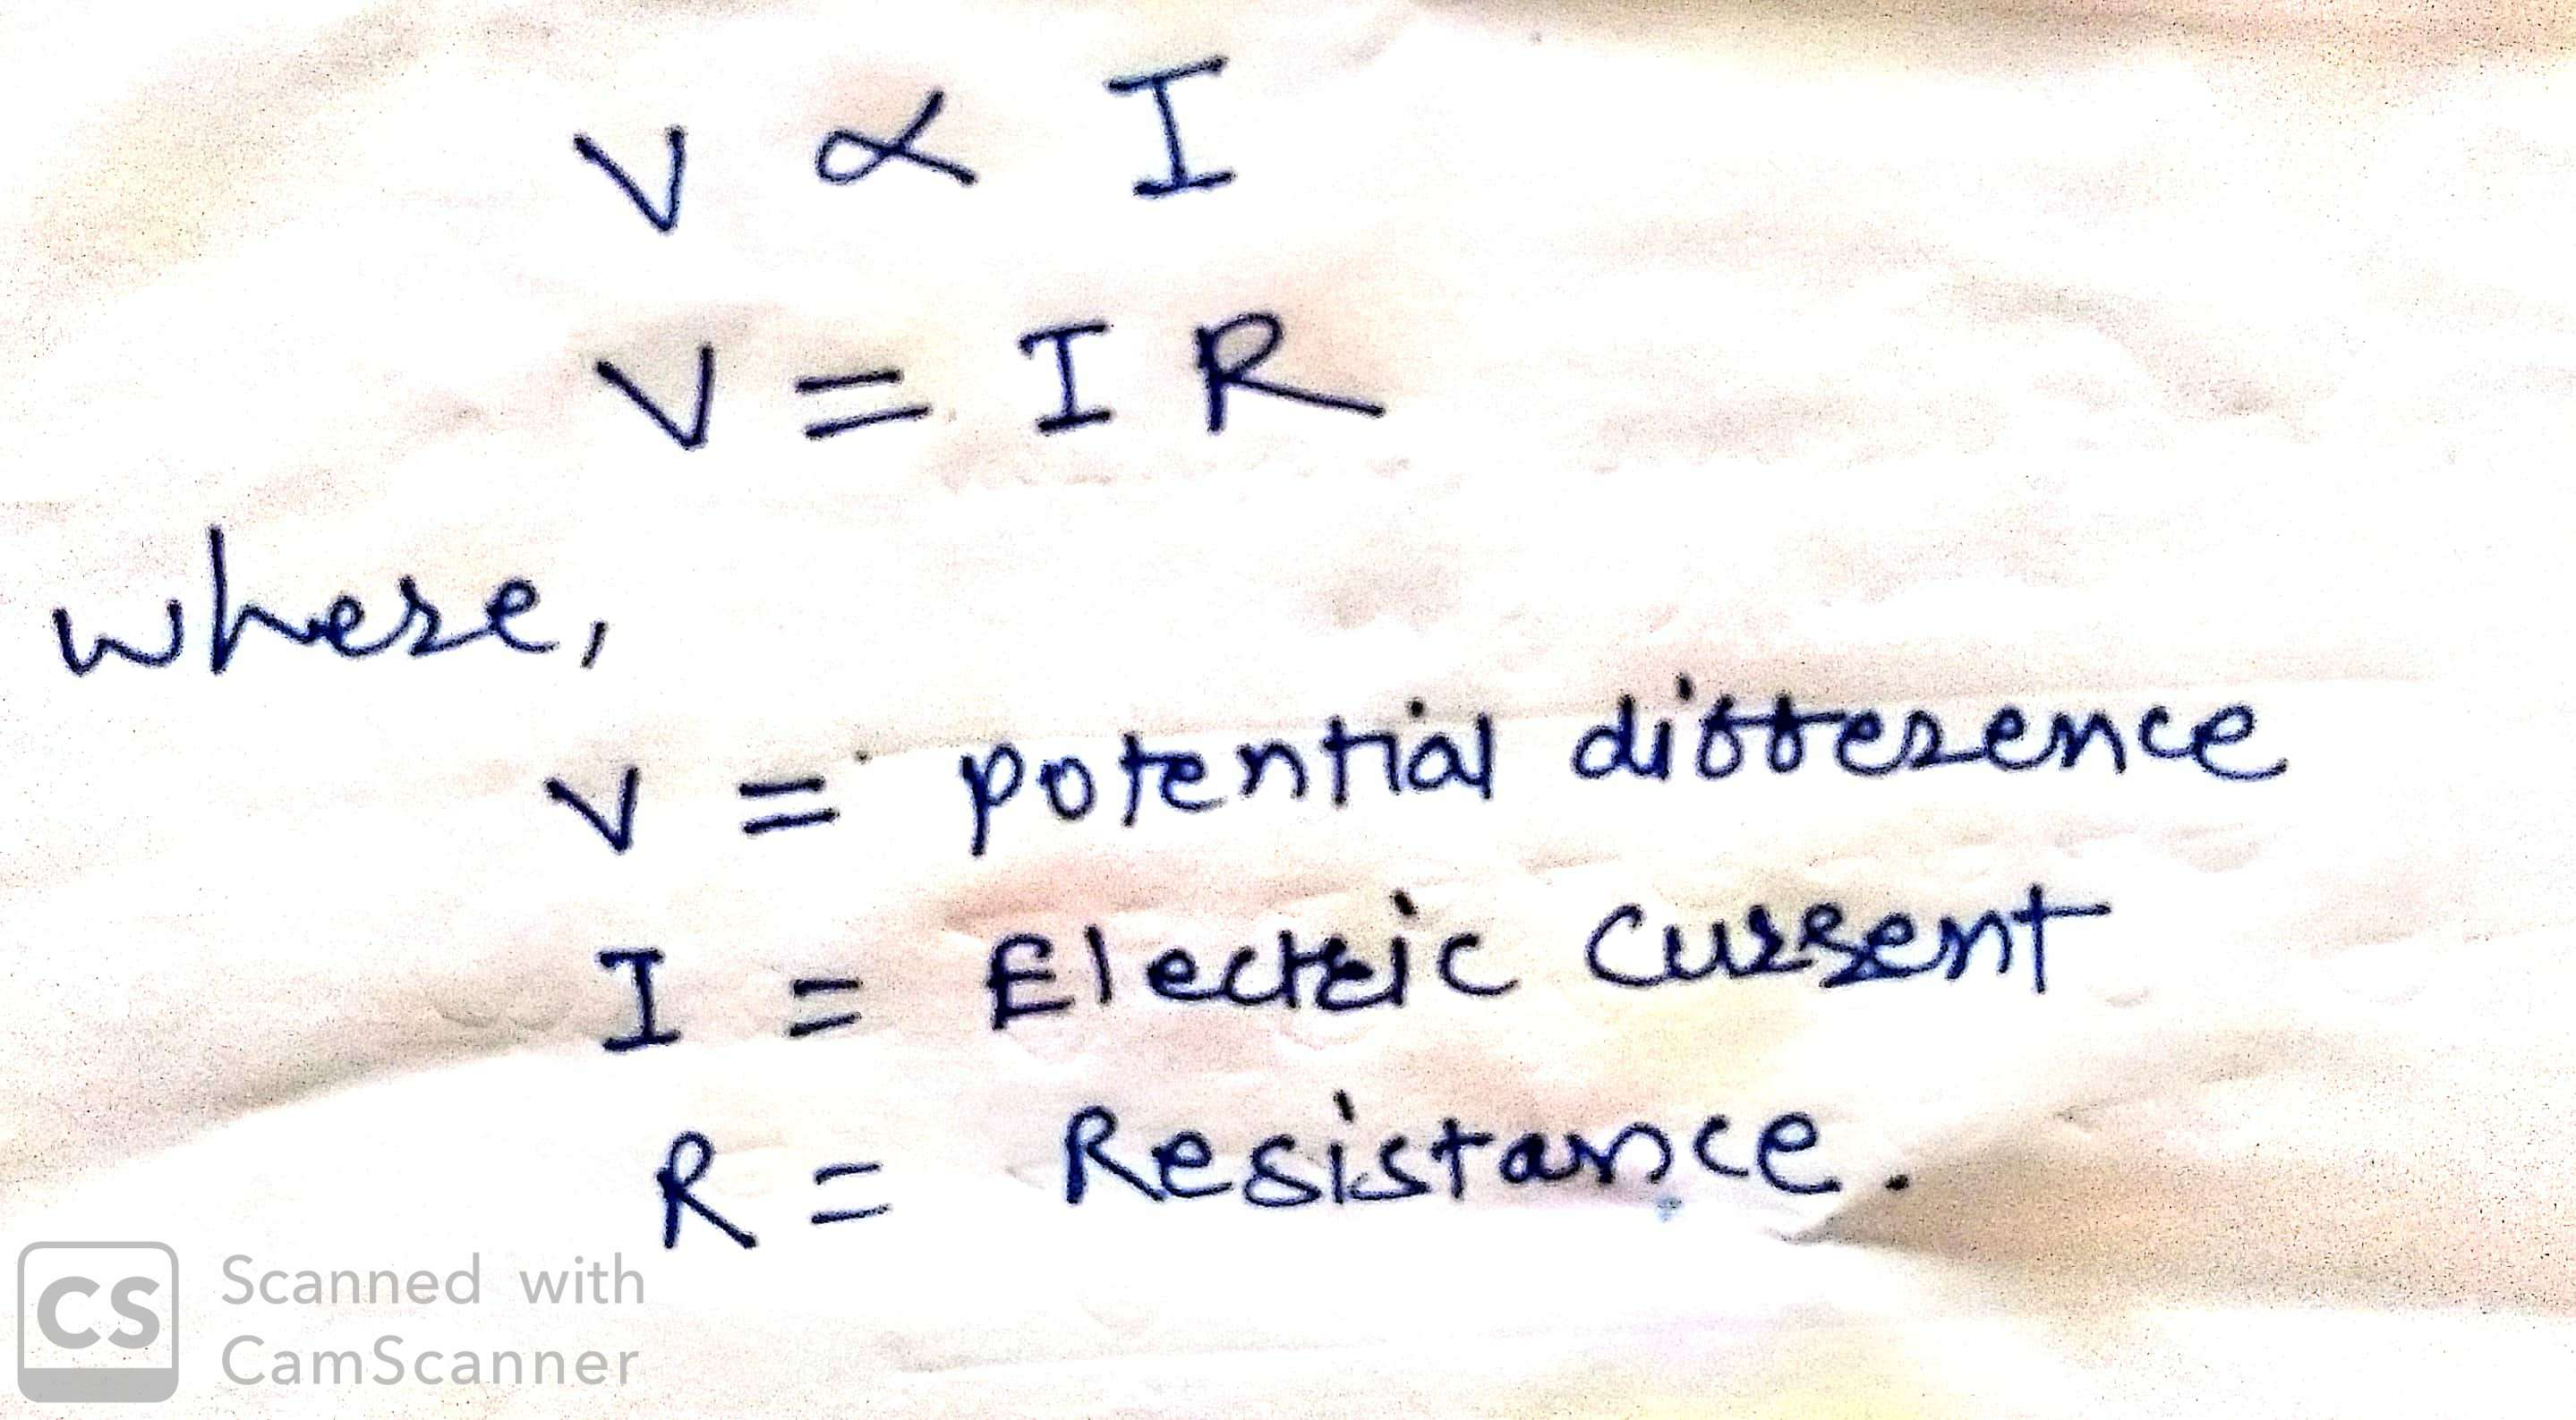 V ∝ I
V = I R
where,
V = potential difference
I = Electric current
R = Resistance.
CS Scanned with
CamScanner